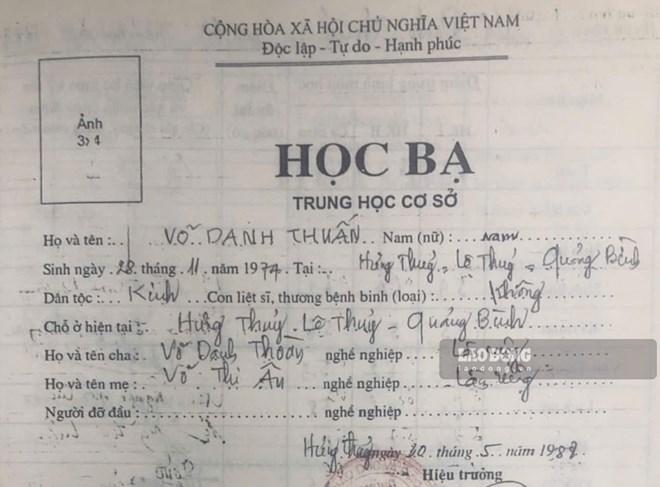 CỘNG HÒA XÃ HỘI CHỦ NGHĨA VIỆT NAM
Độc lập - Tự do - Hạnh phúc
Ảnh
3x4
HỌC BẠ
TRUNG HỌC CƠ SỞ
Họ và tên: VÕ DANH THUẤN Nam (nữ): Nam
Sinh ngày 28 tháng 11 năm 1974 Tại: Hưng Thuỷ - Lệ Thuỷ - Quảng Bình
Dân tộc Kinh Con liệt sĩ, thương bệnh binh (loại): Không
Chỗ ở hiện tại: Hưng Thuỷ - Lệ Thuỷ - Quảng Bình
Họ và tên cha: Võ Danh nghề nghiệp
LAO ĐỘNG
laodong.vn
Họ và tên mẹ: Võ Thị nghề nghiệp
Người đỡ đầu: nghề nghiệp
Hưng Thuỷ ngày 20 tháng 5 năm
Hiệu trưởng